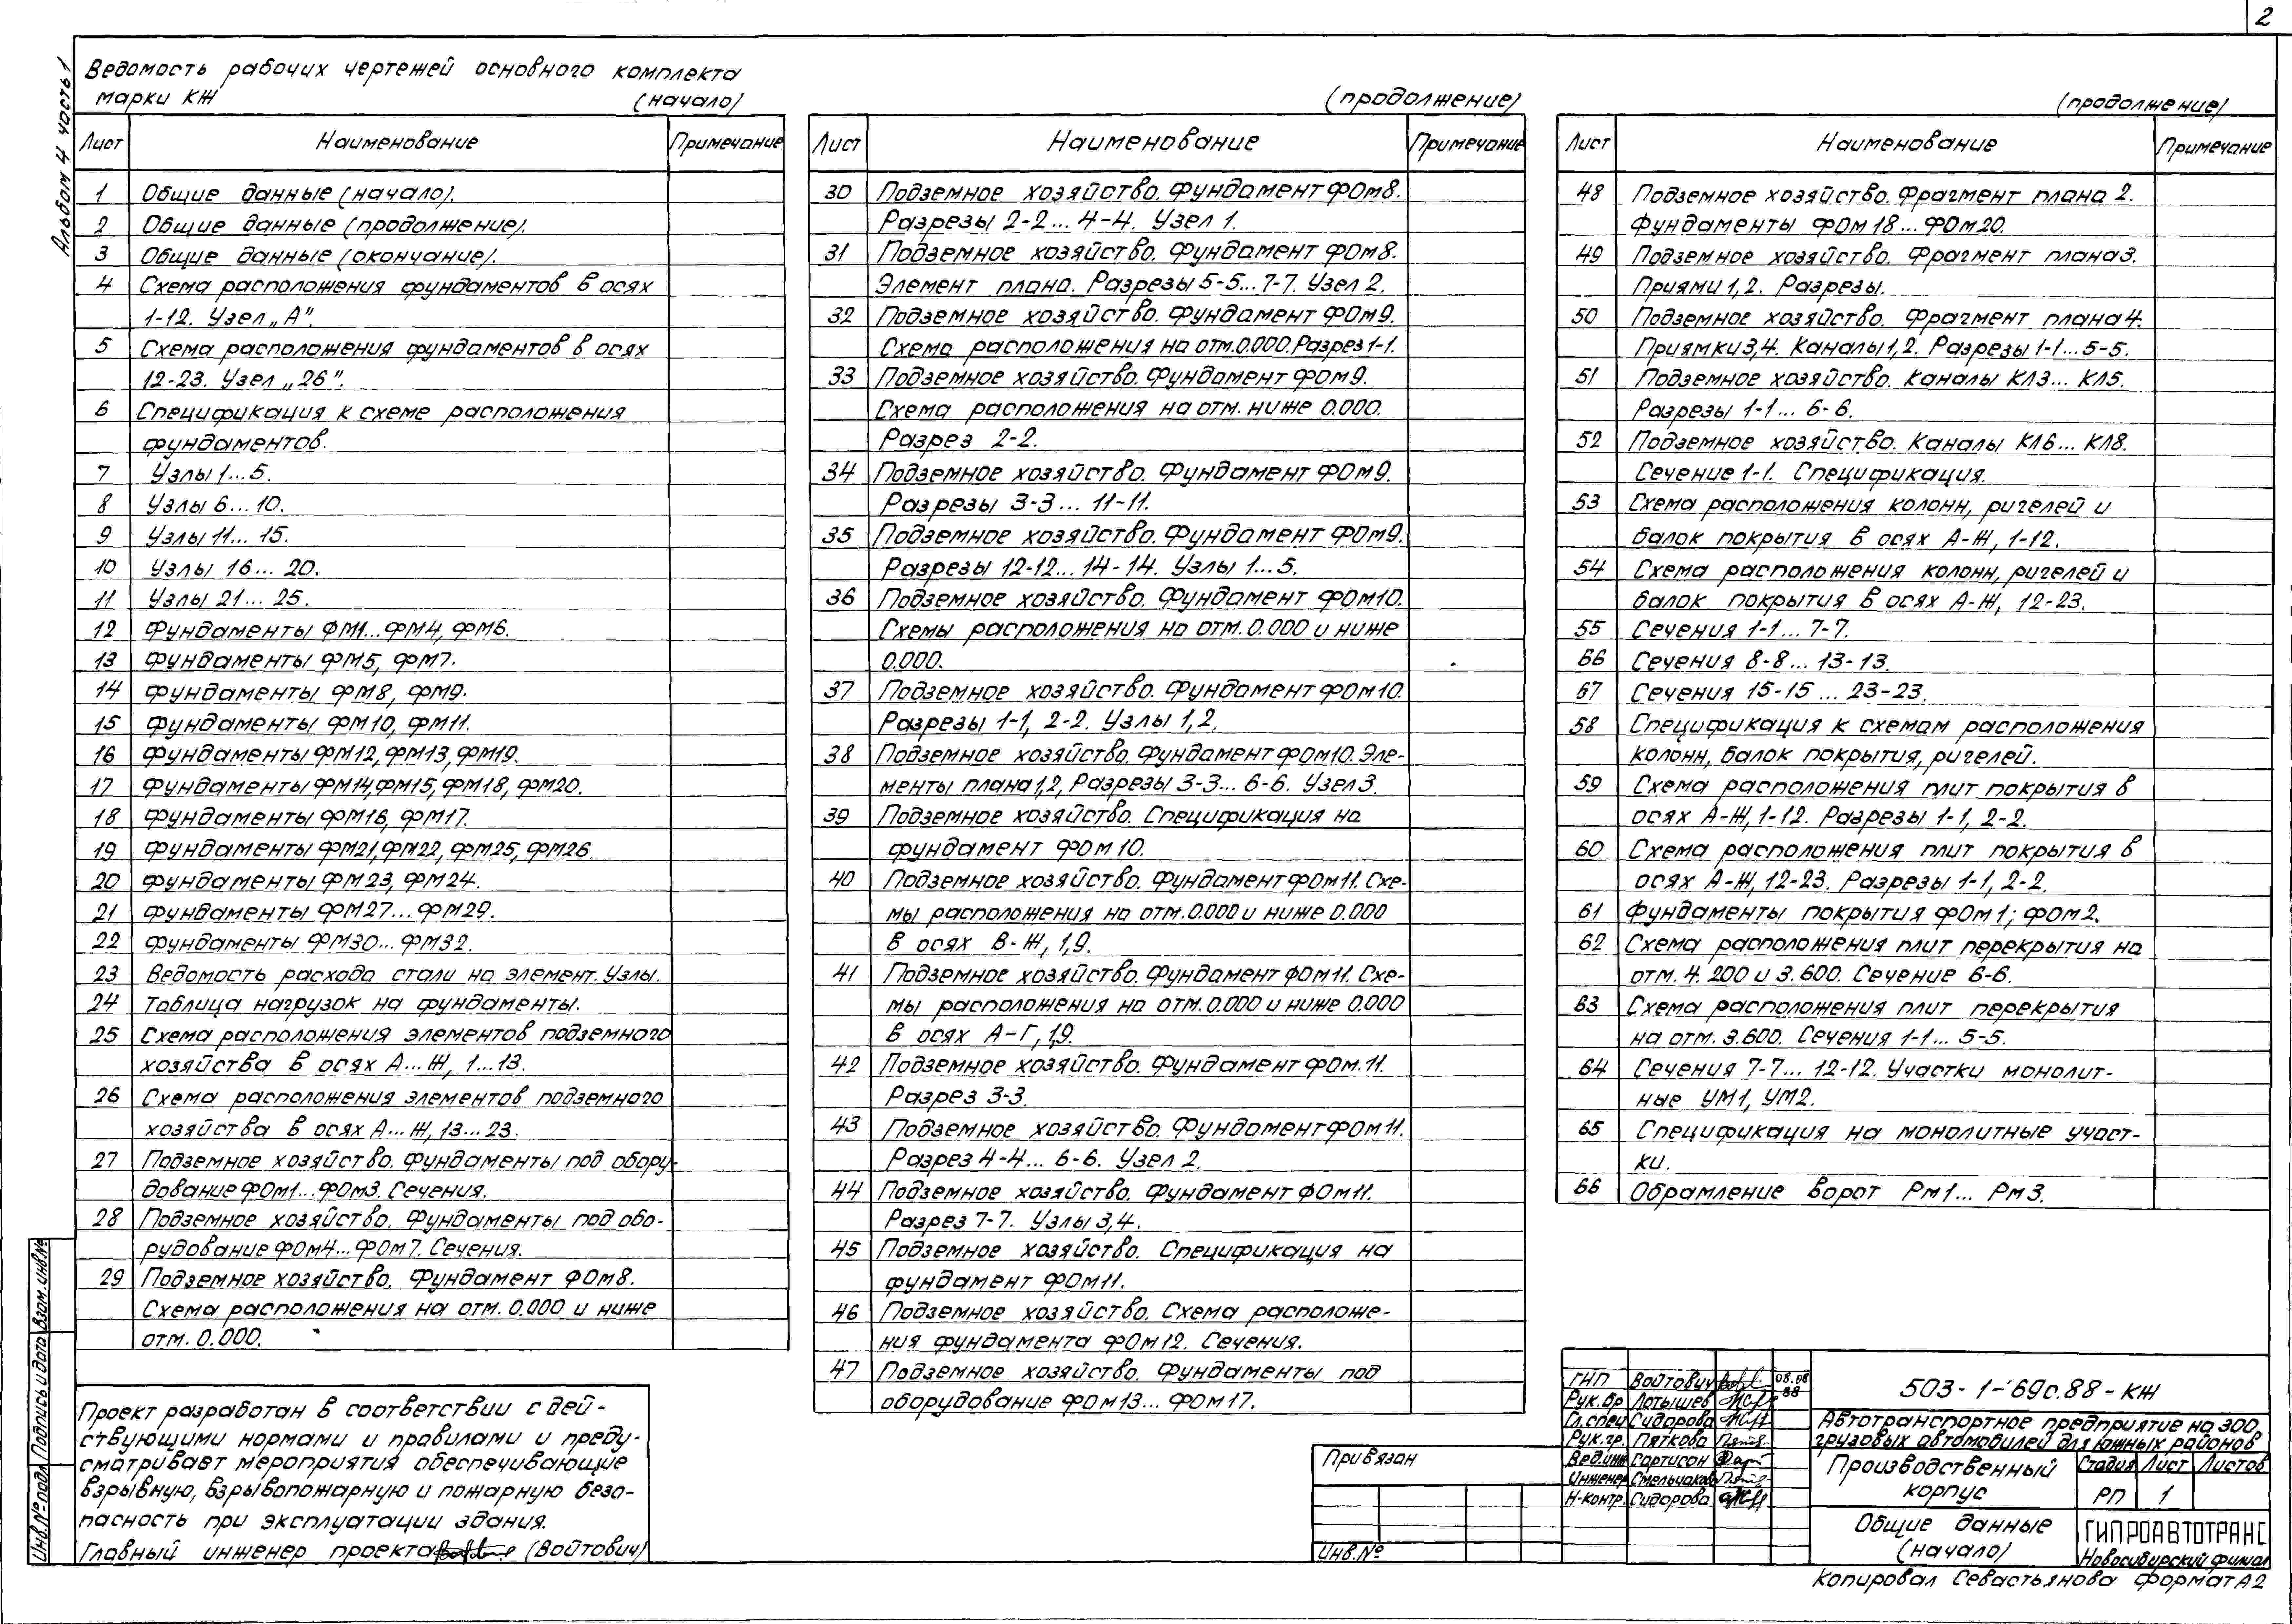 2
Альбом 4 часть 1
Ведомость рабочих чертежей основного комплекта
марки КЖ (начало)
Лист Наименование Примечание
1 Общие данные (начало).
2 Общие данные (продолжение).
3 Общие данные (окончание).
4 Схема расположения фундаментов в осях
1-12. Узел „А".
5 Схема расположения фундаментов в осях
12-23. Узел „26".
6 Спецификация к схеме расположения
фундаментов.
7 Узлы 1...5.
8 Узлы 6...10.
9 Узлы 11... 15.
10 Узлы 16... 20.
11 Узлы 21... 25.
12 Фундаменты ФМ1...ФМ4, ФМ6.
13 Фундаменты ФМ5, ФМ7.
14 Фундаменты ФМ8, ФМ9.
15 Фундаменты ФМ10, ФМ11.
16 Фундаменты ФМ12, ФМ13, ФМ19.
17 Фундаменты ФМ14, ФМ15, ФМ18, ФМ20.
18 Фундаменты ФМ16, ФМ17.
19 Фундаменты ФМ21, ФМ22, ФМ25, ФМ26
20 Фундаменты ФМ23, ФМ24.
21 Фундаменты ФМ27... ФМ29.
22 Фундаменты ФМ30... ФМ32.
23 Ведомость расхода стали на элемент. Узлы.
24 Таблица нагрузок на фундаменты.
25 Схема расположения элементов подземного
хозяйства в осях А...Ж, 1...13.
26 Схема расположения элементов подземного
хозяйства в осях А...Ж, 13...23.
27 Подземное хозяйство. Фундаменты под обору-
дование ФОм1...ФОм3. Сечения.
28 Подземное хозяйство. Фундаменты под обо-
рудование ФОм4...ФОм7. Сечения.
29 Подземное хозяйство. Фундамент ФОм8.
Схема расположения на отм. 0.000 и ниже
отм. 0.000.
(продолжение)
Лист Наименование Примечание
30 Подземное хозяйство. Фундамент ФОм8.
Разрезы 2-2... 4-4. Узел 1.
31 Подземное хозяйство. Фундамент ФОм8.
Элемент плана. Разрезы 5-5... 7-7. Узел 2.
32 Подземное хозяйство. Фундамент ФОм9.
Схема расположения на отм. 0.000. Разрез 1-1.
33 Подземное хозяйство. Фундамент ФОм9.
Схема расположения на отм. ниже 0.000.
Разрез 2-2.
34 Подземное хозяйство. Фундамент ФОм9.
Разрезы 3-3... 11-11.
35 Подземное хозяйство. Фундамент ФОм9.
Разрезы 12-12... 14-14. Узлы 1...5.
36 Подземное хозяйство. Фундамент ФОм10.
Схемы расположения на отм. 0.000 и ниже
0.000.
37 Подземное хозяйство. Фундамент ФОм10.
Разрезы 1-1, 2-2. Узлы 1,2.
38 Подземное хозяйство. Фундамент ФОм10. Эле-
менты плана 1,2, Разрезы 3-3... 6-6. Узел 3.
39 Подземное хозяйство. Спецификация на
фундамент ФОм10.
40 Подземное хозяйство. Фундамент ФОм11. Схе-
мы расположения на отм. 0.000 и ниже 0.000
в осях В-Ж, 1,9.
41 Подземное хозяйство. Фундамент ФОм11. Схе-
мы расположения на отм. 0.000 и ниже 0.000
в осях А-Г, 1,9.
42 Подземное хозяйство. Фундамент ФОм.11.
Разрез 3-3.
43 Подземное хозяйство. Фундамент ФОм11.
Разрез 4-4... 6-6. Узел 2.
44 Подземное хозяйство. Фундамент ФОм11.
Разрез 7-7. Узлы 3,4.
45 Подземное хозяйство. Спецификация на
фундамент ФОм11.
46 Подземное хозяйство. Схема расположе-
ния фундамента ФОм12. Сечения.
47 Подземное хозяйство. Фундаменты под
оборудование ФОм13... ФОм17.
(продолжение)
Лист Наименование Примечание
48 Подземное хозяйство. Фрагмент плана 2.
Фундаменты ФОм18... ФОм20.
49 Подземное хозяйство. Фрагмент плана3.
Приямки 1,2. Разрезы.
50 Подземное хозяйство. Фрагмент плана 4.
Приямки 3,4. Каналы 1,2. Разрезы 1-1... 5-5.
51 Подземное хозяйство. Каналы КЛ3... КЛ5.
Разрезы 1-1... 6-6.
52 Подземное хозяйство. Каналы КЛ6... КЛ8.
Сечение 1-1. Спецификация.
53 Схема расположения колонн, ригелей и
балок покрытия в осях А-Ж, 1-12.
54 Схема расположения колонн, ригелей и
балок покрытия в осях А-Ж, 12-23.
55 Сечения 1-1... 7-7.
56 Сечения 8-8... 13-13.
57 Сечения 15-15... 23-23.
58 Спецификация к схемам расположения
колонн, балок покрытия, ригелей.
59 Схема расположения плит покрытия в
осях А-Ж, 1-12. Разрезы 1-1, 2-2.
60 Схема расположения плит покрытия в
осях А-Ж, 12-23. Разрезы 1-1, 2-2.
61 Фундаменты покрытия ФОм1; ФОм2.
62 Схема расположения плит перекрытия на
отм. 4.200 и 3.600. Сечение 6-6.
63 Схема расположения плит перекрытия
на отм. 3.600. Сечения 1-1... 5-5.
64 Сечения 7-7... 12-12. Участки монолит-
ные УМ1, УМ2.
65 Спецификация на монолитные участ-
ки.
66 Обрамление ворот Рм1... Рм3.
Проект разработан в соответствии с дей-
ствующими нормами и правилами и преду-
сматривает мероприятия обеспечивающие
взрывную, взрывопожарную и пожарную безо-
пасность при эксплуатации здания.
Главный инженер проекта (Войтович)
Инв.№ подл. Подпись и дата Взам. инв.№
Привязан
Инв.№
ГИП Войтович 08.08
88
Рук.бр Лотышев
Гл.спец Сидорова
Рук.гр. Пяткова
Вед.инж Гартисон
Инженер Смельчакова
Н-контр. Сидорова
503-1-69с.88-КЖ
Автотранспортное предприятие на 300
грузовых автомобилей для южных районов
Производственный
корпус
Стадия Лист Листов
РП 1
Общие данные
(начало)
ГИПРОАВТОТРАНС
Новосибирский филиал
Копировал Севастьянова Формат А2